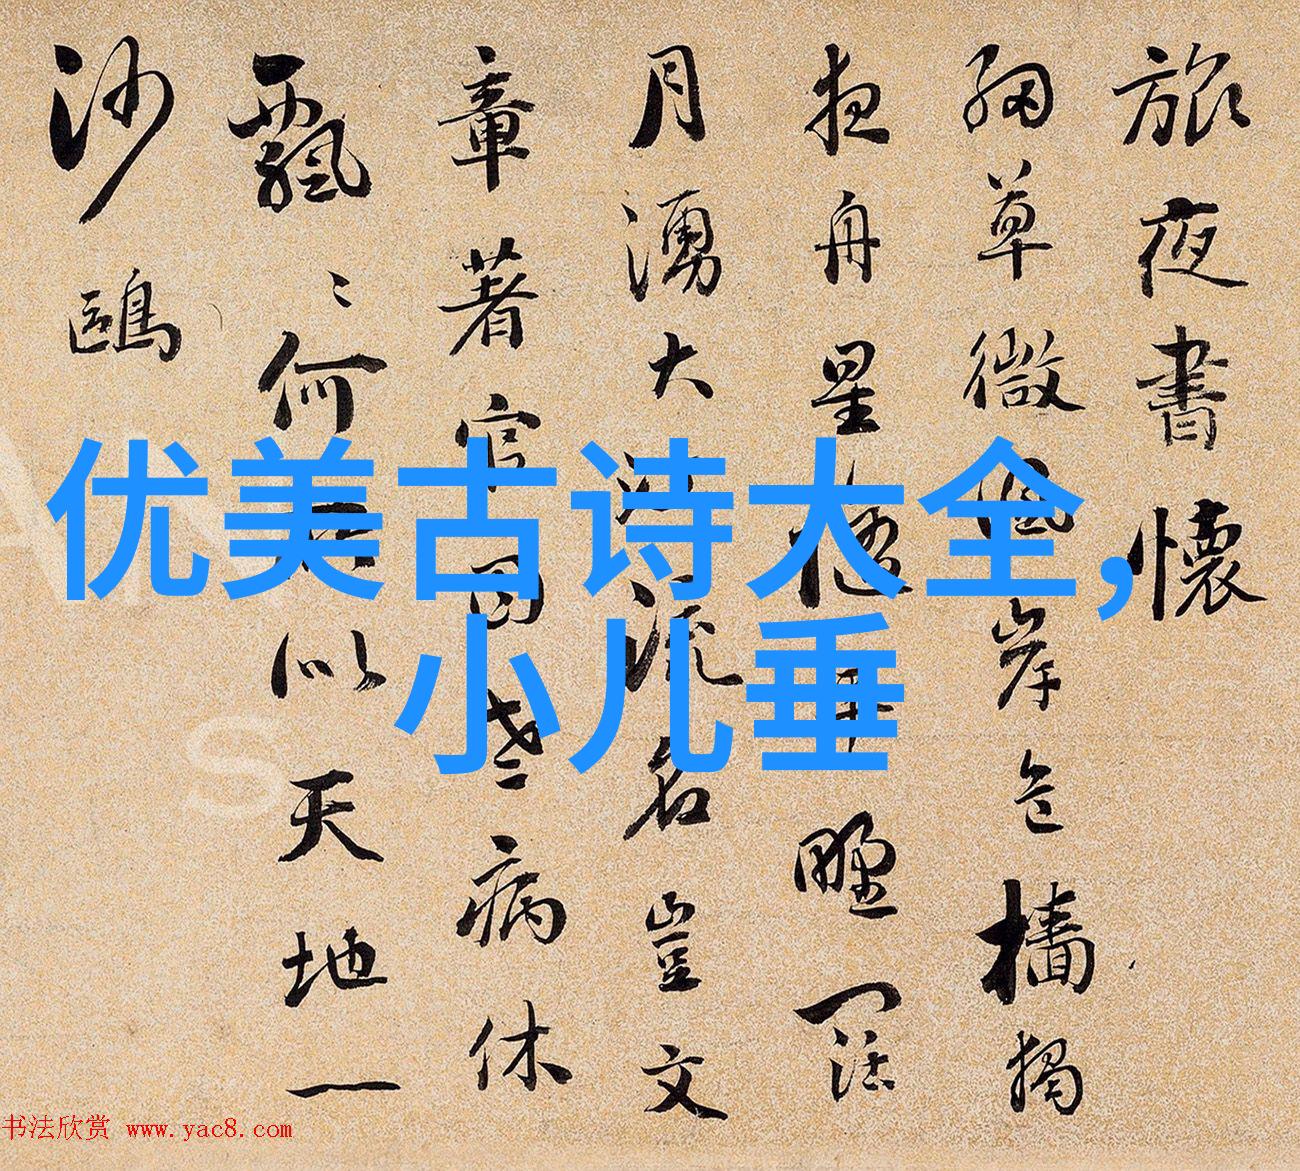 旅夜書懷
細草微風岸危檣獨
夜舟星平野闊
月湧大江流名豈文
章著官因老病休
飄〻何所似天地一
沙鷗
优美古诗大全,
小儿垂
书法欣赏 www.yac8.com